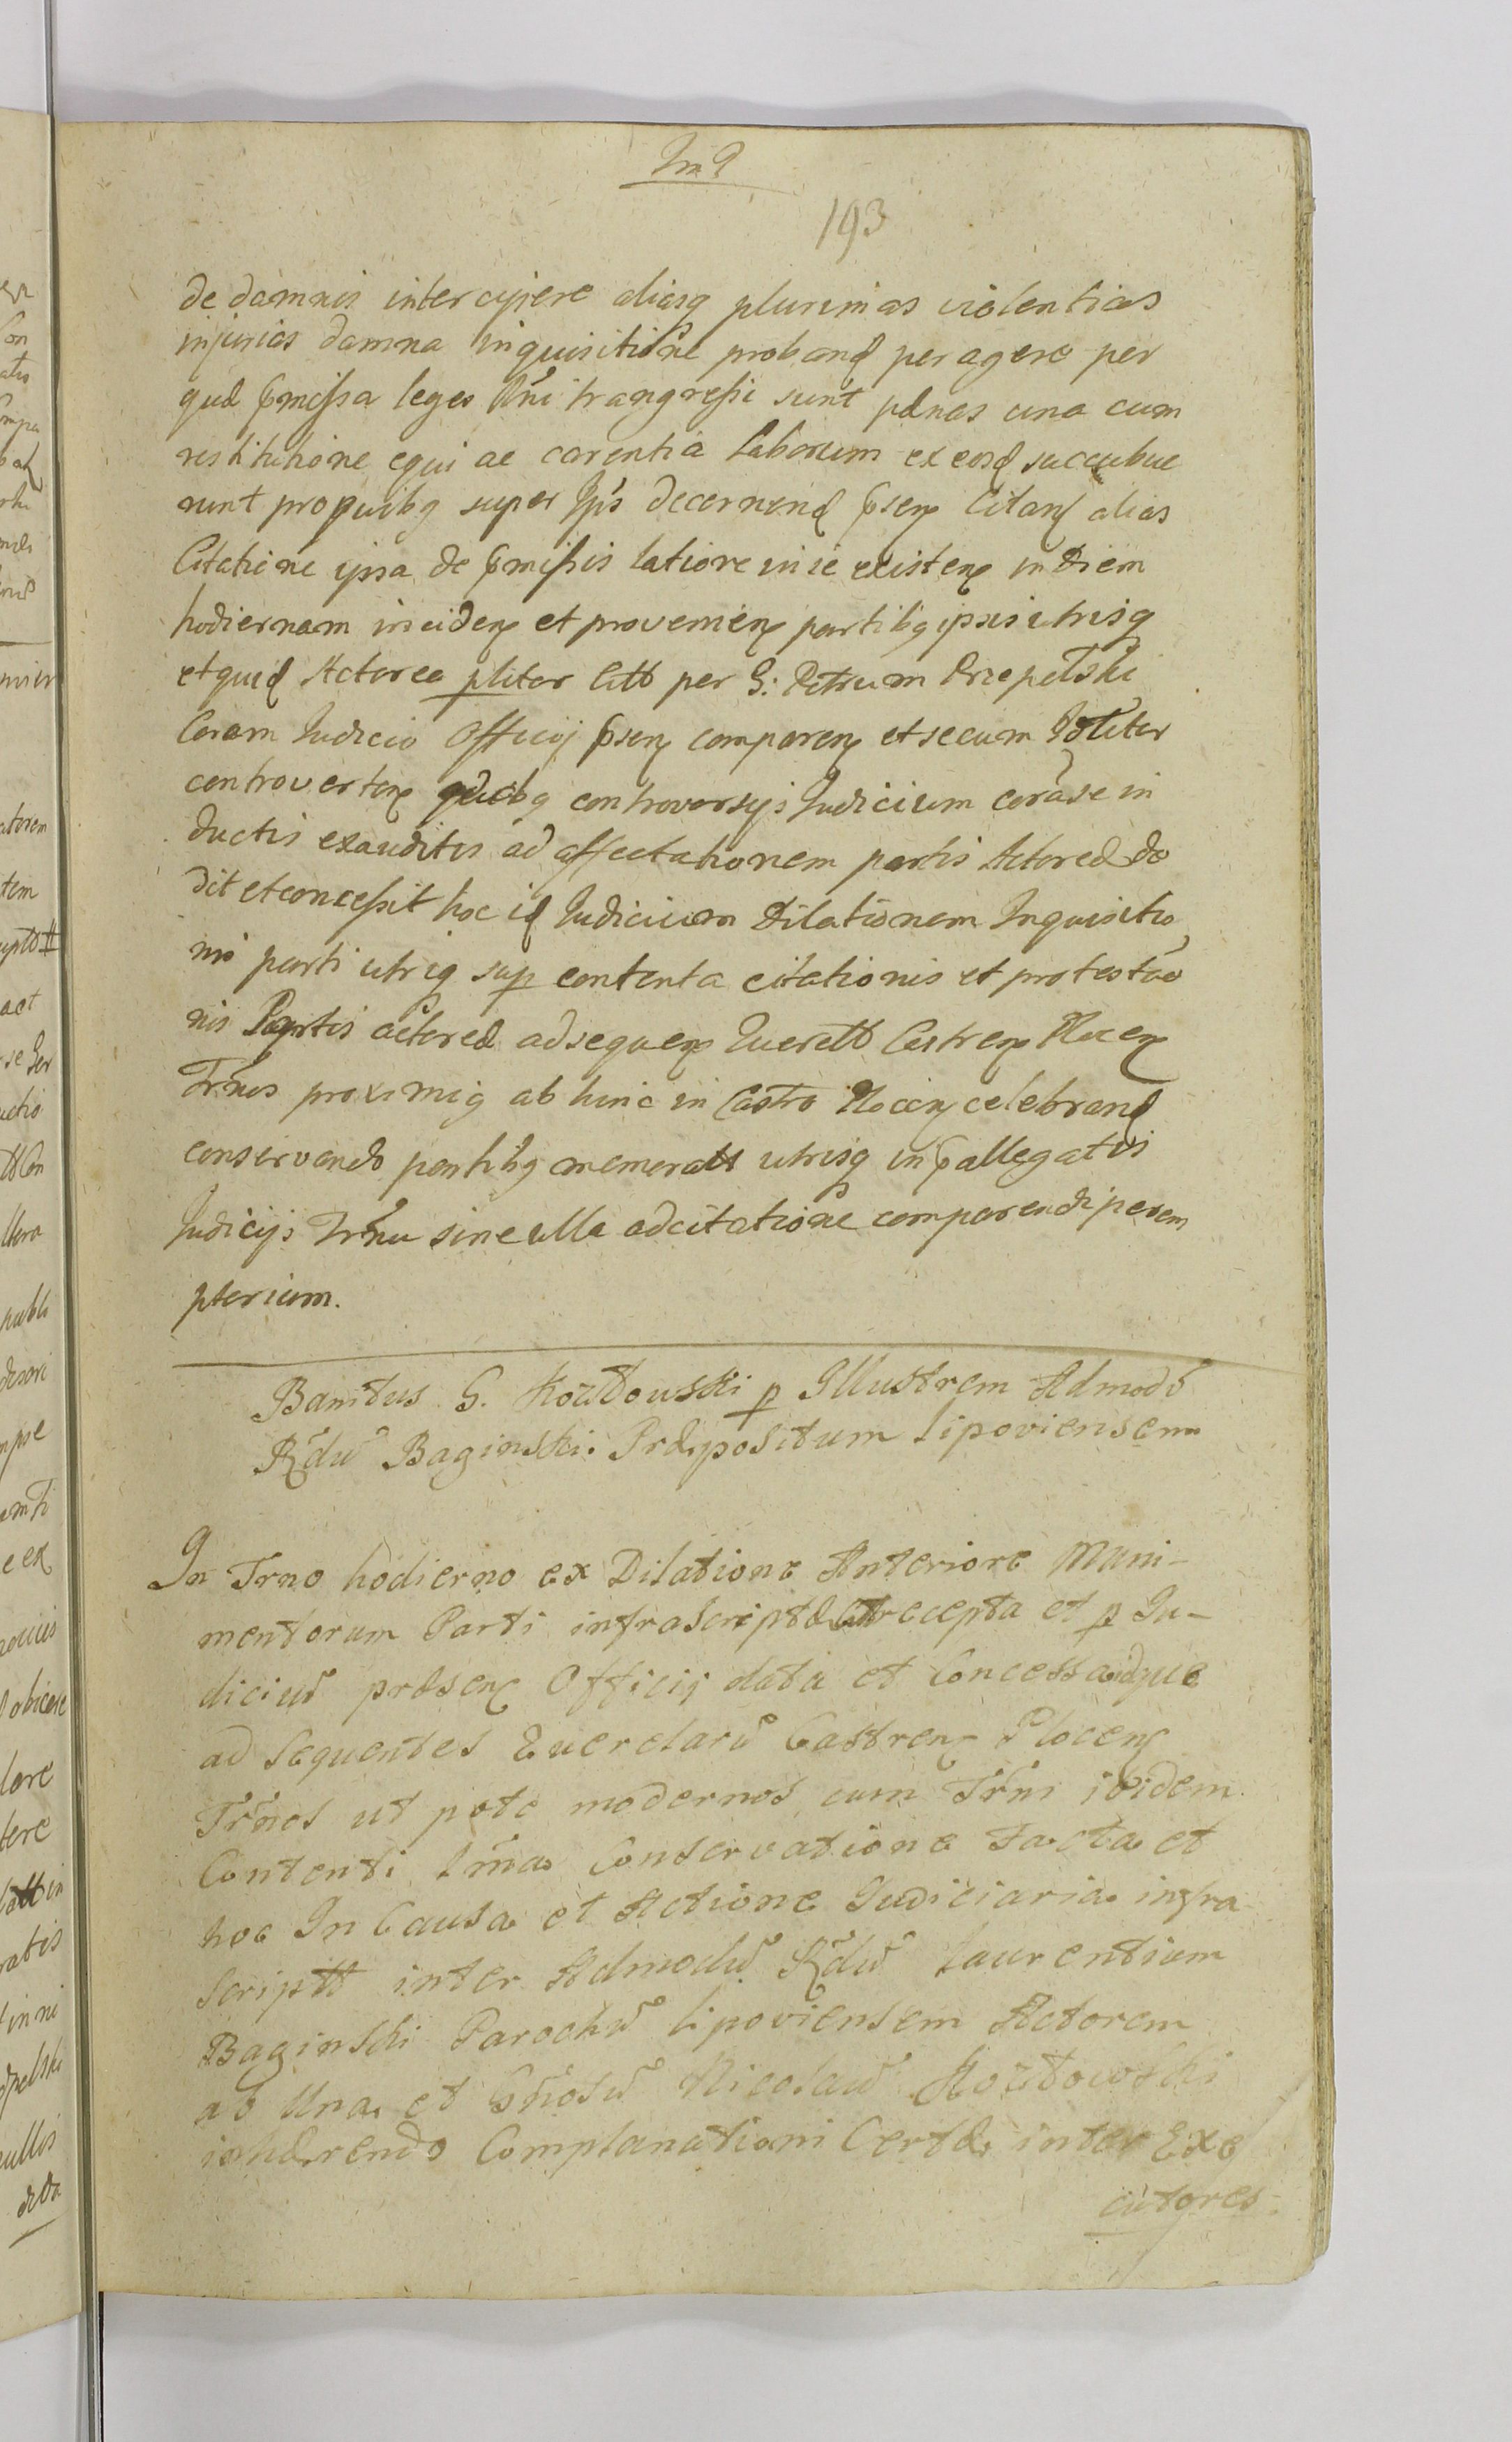 193
de damnis intercipere aliasq plurimas violentias
injurias damna inquisitione proband peragere per
quæ pmissa leges Rni trangressi sunt pænas una cum
restitutione equi ac carentia laborum ex eosd succubue
runt pro quibq super Ips decernend psen Citan alias
Citatione ipsa de pmissis latiore in se existen in Diem
hodiernam inciden et provenien partibq ipsis utrisq
et quid Actorea pliter citt per G: Petrum Przepelski
Coram Judicio Officij psen comparen et secum Jdliter
controverten quibq controversijs Judicium coram se in
ductis exauditis ad affectationem partis Actoreæ de
dit et concessit hoc id Judicium Dilationem Inquisitio
nis parti utriq sup contenta citationis et protestao
nis Partis actoreæ ad sequen Querell Castren Plocen
Trnos proximiq ab hinc in Castro Plocen celebrand
conservando partibq memoratt utrisq in pallegatis
Judicijs Trnu sine ulla adcitatione comparendi perem
pterium.
Banitus G. Kozłowski p Illustrem Admodu
Rdu Baginski Præpositum Lipoviensem
In Trno hodierno ex Dilatione Anteriore Muni-
mentorum Parti infrascriptæ recepta et p Ju-
diciu præsen Officij data et Concessa idque
ad Sequentes Querelaru Castren Plocen
Trnos ut pote modernos cum Trni ibidem
Contenti Lima Conservatione Facta et
hoc In Causa et Actione Judiciaria infra
scriptt inter Admodu Rdu Laurentium
Baginski Parochu Lipoviensem Actorem
ab Una et Gnosu Nicolau Kozłowski
inhærendo Complanationi Certæ inter Exe
cutores